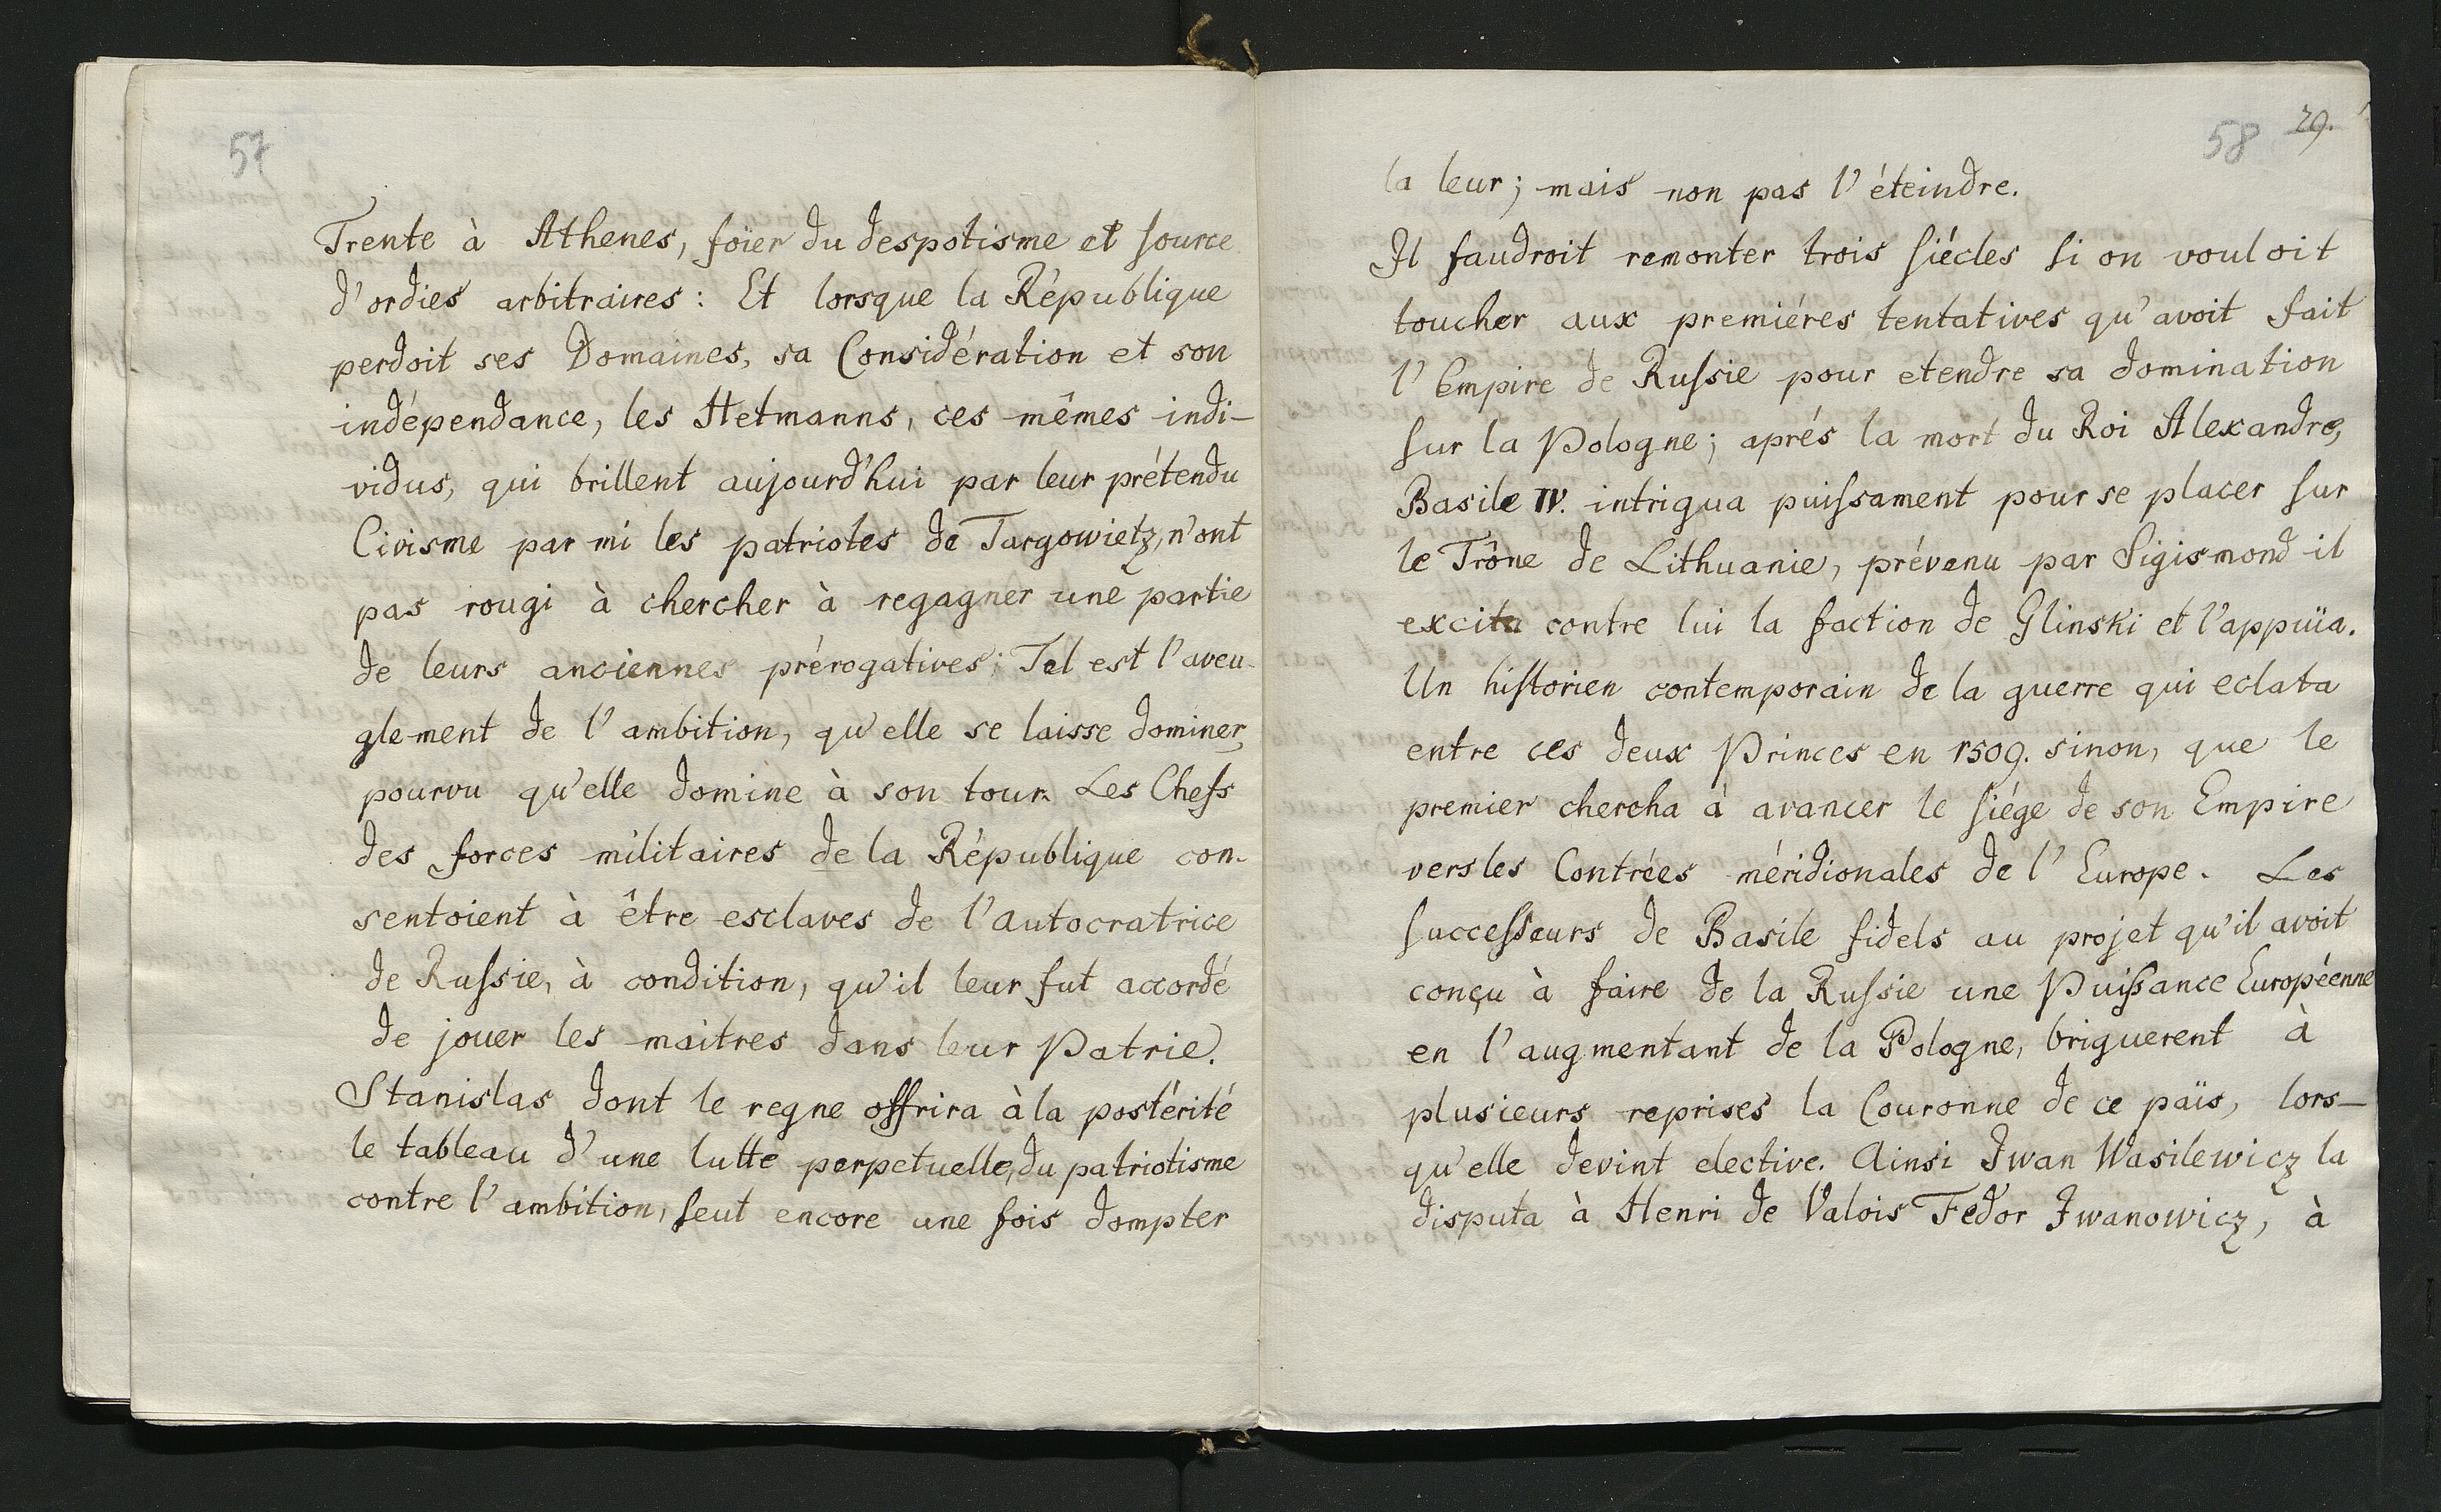 57
Trente à Athenes, foïer du despotisme et source
d'ordies arbitraires: Et lorsque la République
perdoit ses Domaines, sa Considération et son
indépendance, les Hetmanns, ces mêmes indi-
vidus, qui brillent aujourd'hui par leur prétendu
Civisme par mi les patriotes de Targowietz, n'ont
pas rougi à chercher à regagner une partie
de leurs anciennes prérogatives; Tel est l'aveu-
glement de l'ambition, qu'elle se laisse dominer,
pourvu qu'elle domine à son tour. Les Chefs
des forces militaires de la République con-
sentoient à être esclaves de l'autocratrice
de Russie, à condition, qu'il leur fut accordé
de jouer les maitres dans leur Patrie.
Stanislas dont le regne offrira à la postérité
le tableau d'une lutte perpetuelle, du patriotisme
contre l'ambition, seut encore une fois dompter
58 29.
la leur; mais non pas l'éteindre.
Il faudroit remonter trois siécles si on vouloit
toucher aux premiéres tentatives qu'avoit fait
l'Empire de Russie pour etendre sa domination
sur la Pologne; aprés la mort du Roi Alexandre,
Basile IV. intrigua puissament pour se placer sur
le Trône de Lithuanie, prévenu par Sigismond il
excita contre lui la faction de Glinski et l'appuïa.
Un historien contemporain de la guerre qui eclata
entre ces deux Princes en 1509. sinon, que le
premier chercha à avancer le siége de son Empire
vers les Contrées méridionales de l'Europe. Les
successeurs de Basile fidels au projet qu'il avoit
conçu à faire de la Russie une Puissance Européenne
en l'augmentant de la Pologne, briguerent à
plusieurs reprises la Couronne de ce païs, lors-
qu'elle devint elective. Ainsi Iwan Wasilewicz la
disputa à Henri de Valois Fedor Iwanowicz, à